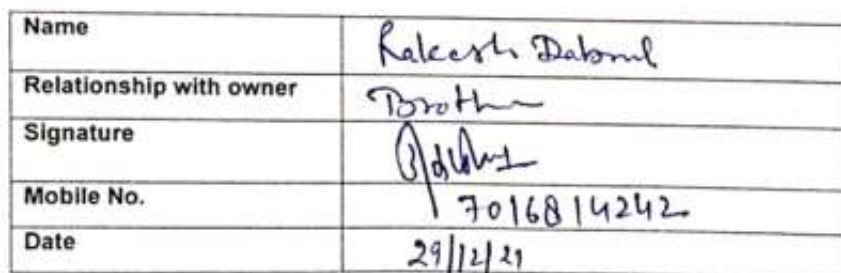 Name Rakesh Dabrul
Relationship with owner Brother
Signature
Mobile No. 7016814242
Date 29/12/21